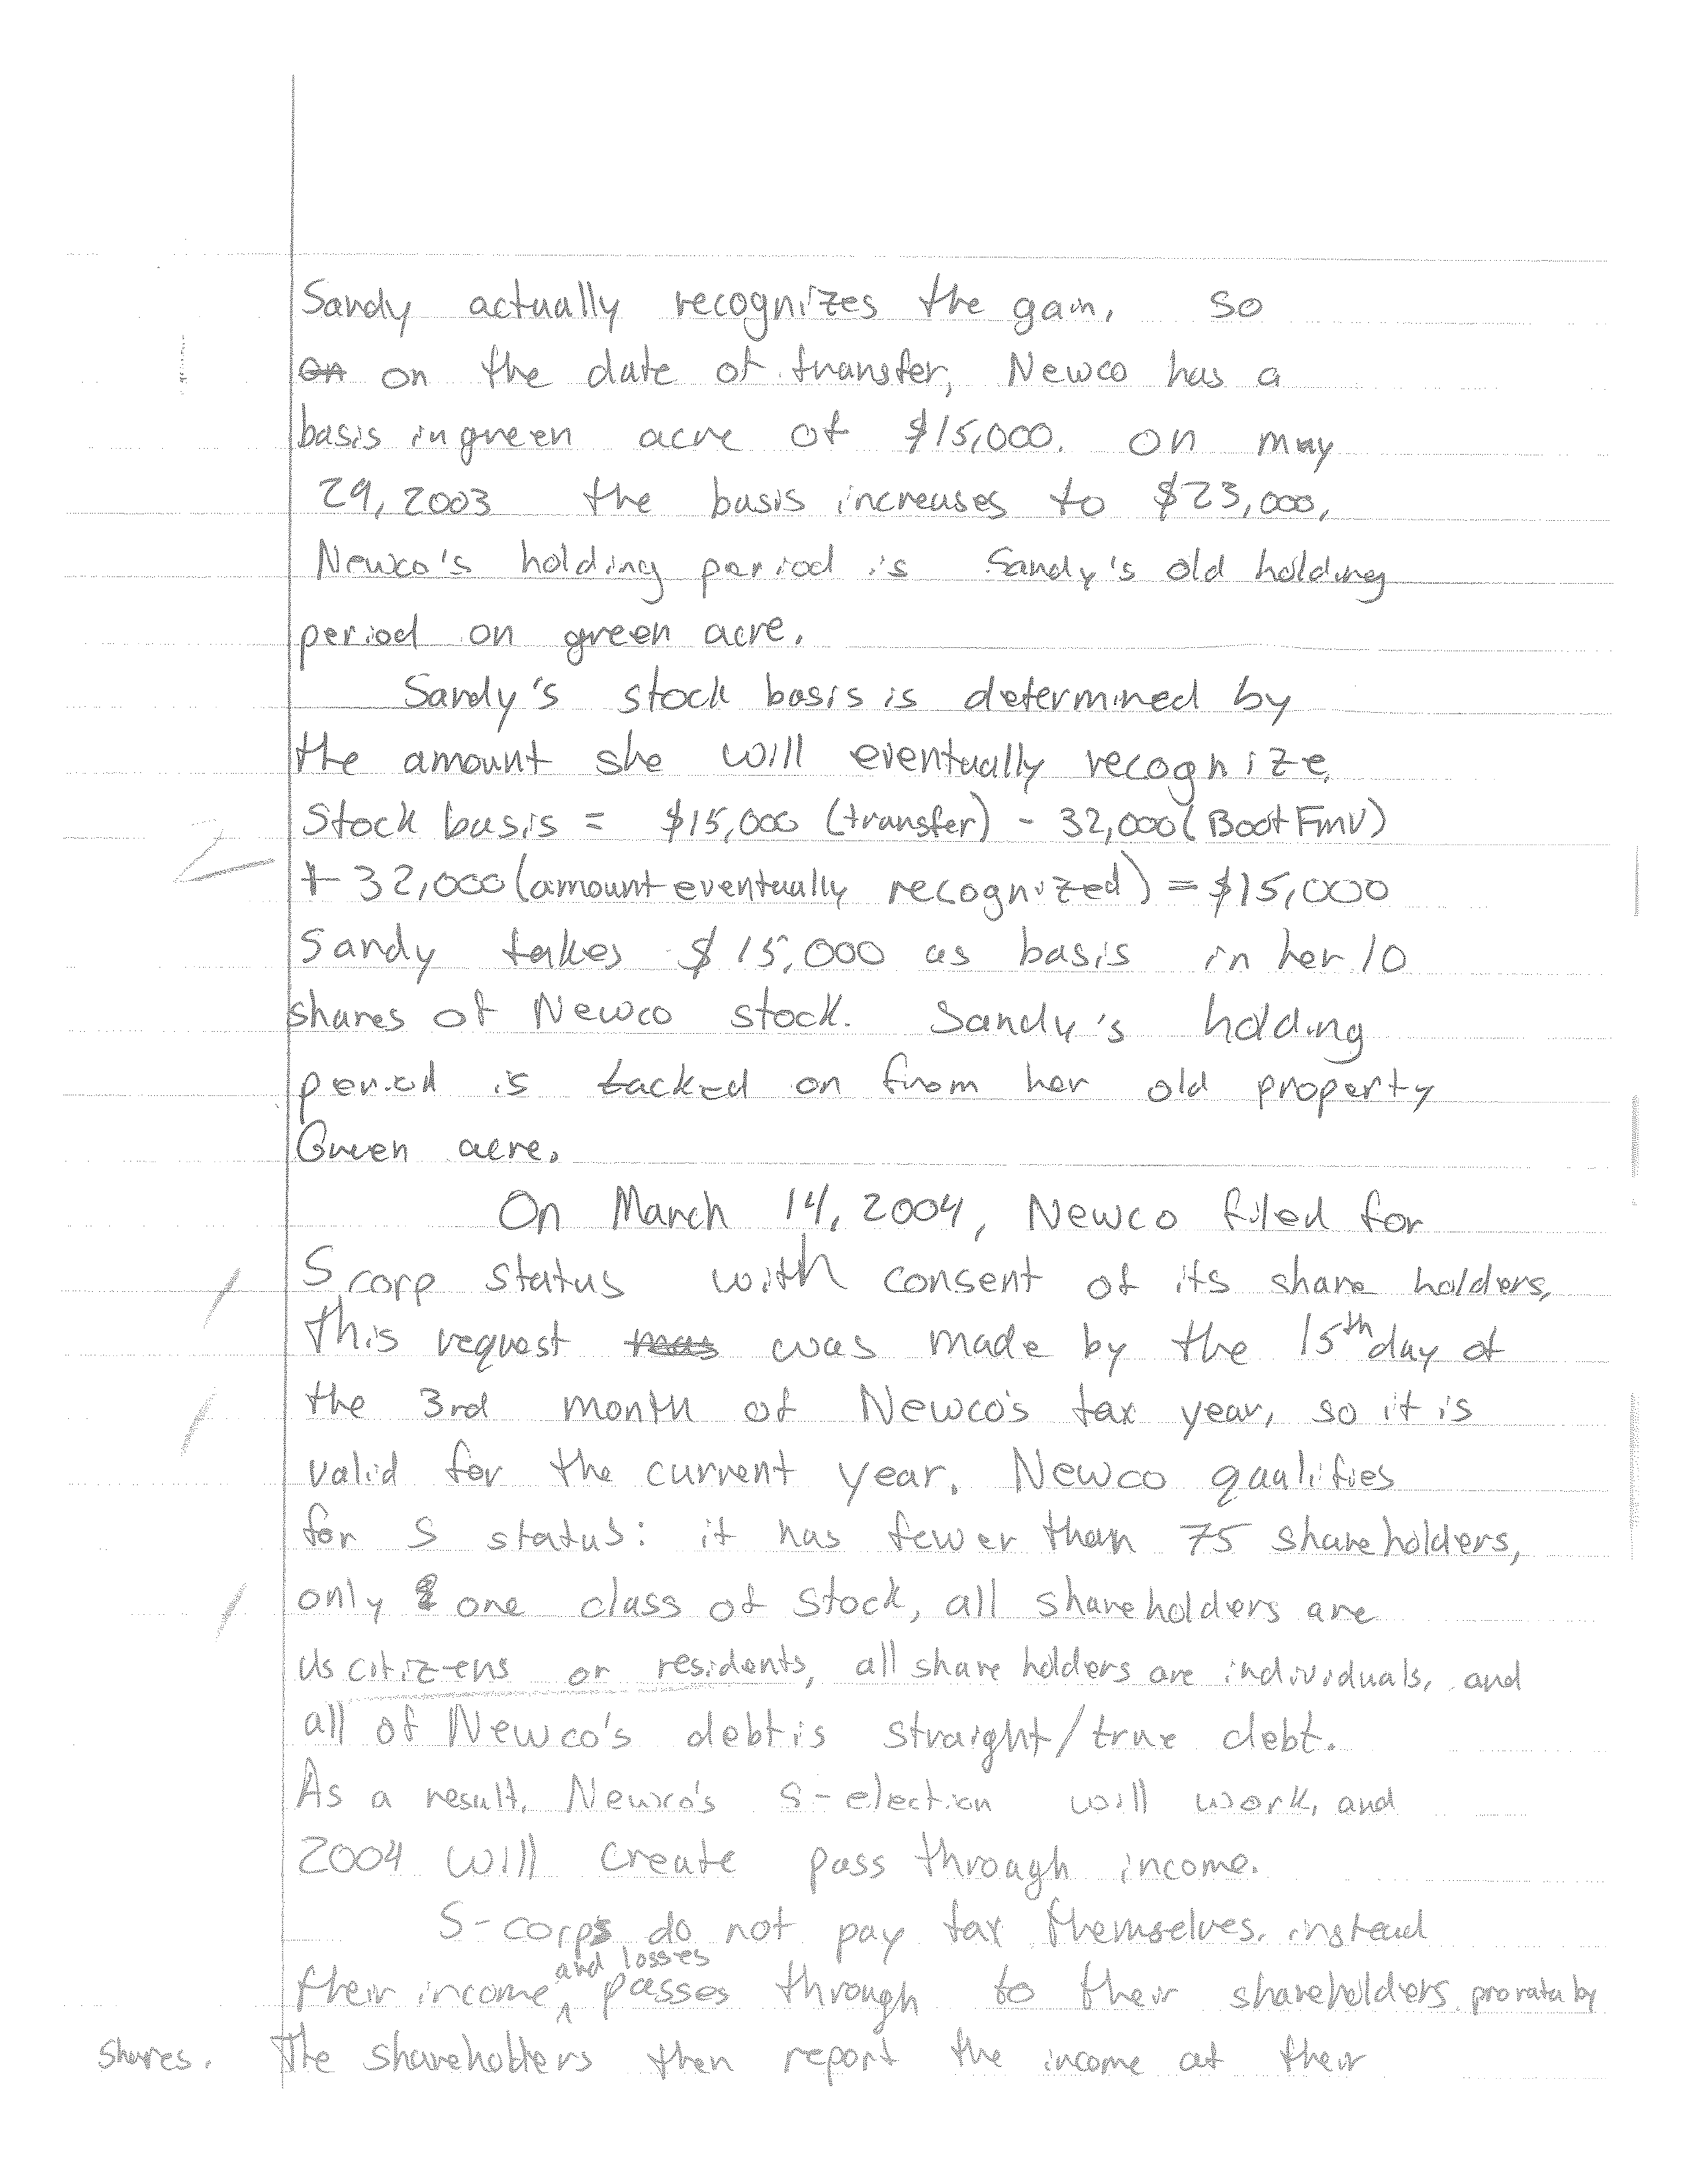 Sandy actually recognizes the gain, so
on on the date of transfer, Newco has a
basis in green acre of $15,000. On may
29, 2003 the basis increases to $23,000,
Newco's holding period is Sandy's old holding
period on green acre.
Sandy's stock basis is determined by
the amount she will eventually recognize.
Stock basis = $15,000 (transfer) - 32,000 (Boot FMV)
2
+ 32,000 (amount eventually recognized) = $15,000
Sandy takes $15,000 as basis in her 10
shares of Newco stock. Sandy's holding
period is tacked on from her old property
Green acre.
On March 14, 2004, Newco filed for
S corp status with consent of its share holders,
this request was was made by the 15th day of
the 3rd month of Newco's tax year, so it is
valid for the current year. Newco qualifies
for S status: it has fewer than 75 shareholders,
only one class of stock, all shareholders are
US citizens or residents, all share holders are individuals, and
all of Newco's debt is straight/true debt.
As a result, Newco's S-election will work, and
2004 will create pass through income.
S-corps do not pay tax themselves. instead
their income and losses passes through to their shareholders pro rata by
shares. The shareholders then report the income at their